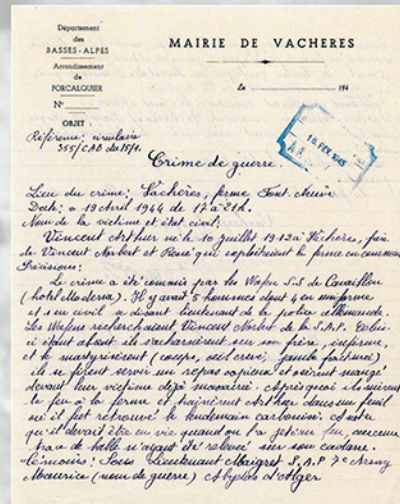 Département
des
BASSES-ALPES
Arrondissement
de
FORCALQUIER
N°
OBJET :
MAIRIE DE VACHERES
Le 194
Référence: circulaire
355/CAB du 15/1.
16 FEV 1945
Crime de guerre.
Lieu du crime: Vachères, ferme Font-Neuve
Date: 19 Avril 1944 de 17 à 21h.
Nom de la victime et état civil:
Vincent Arthur né le 10 juillet 1912 à Vachères, frère
de Vincent Norbert et René qui exploitaient la ferme en commun
Précisions:
Le crime a été commis par les Wafen S.S de Cavaillon
(hotel Moderne). Il y avait 5 hommes dont 4 en uniforme
et 1 en civil se disant lieutenant de la police allemande.
Les Wafens recherchaient Vincent Norbert de la S.A.P. Celui-
ci étant absent ils s'acharnèrent sur son frère, infirme,
et le martyrisèrent (coups, oeil crevé, jambe fracturée)
ils se firent servir un repas copieux et mangé
devant leur victime déjà massacrée. Après quoi ils mirent
le feu à la ferme et trainèrent Arthur dans un
où il fut retrouvé le lendemain carbonisé.
qu'il devait être en vie quand on l'a jeté au feu, aucune
trace de balle n'ayant été relevée sur son cadavre.
Témoins: Sous Lieutenant Maigret S.A.P 7e
Maurice (nom de guerre) d'Alger